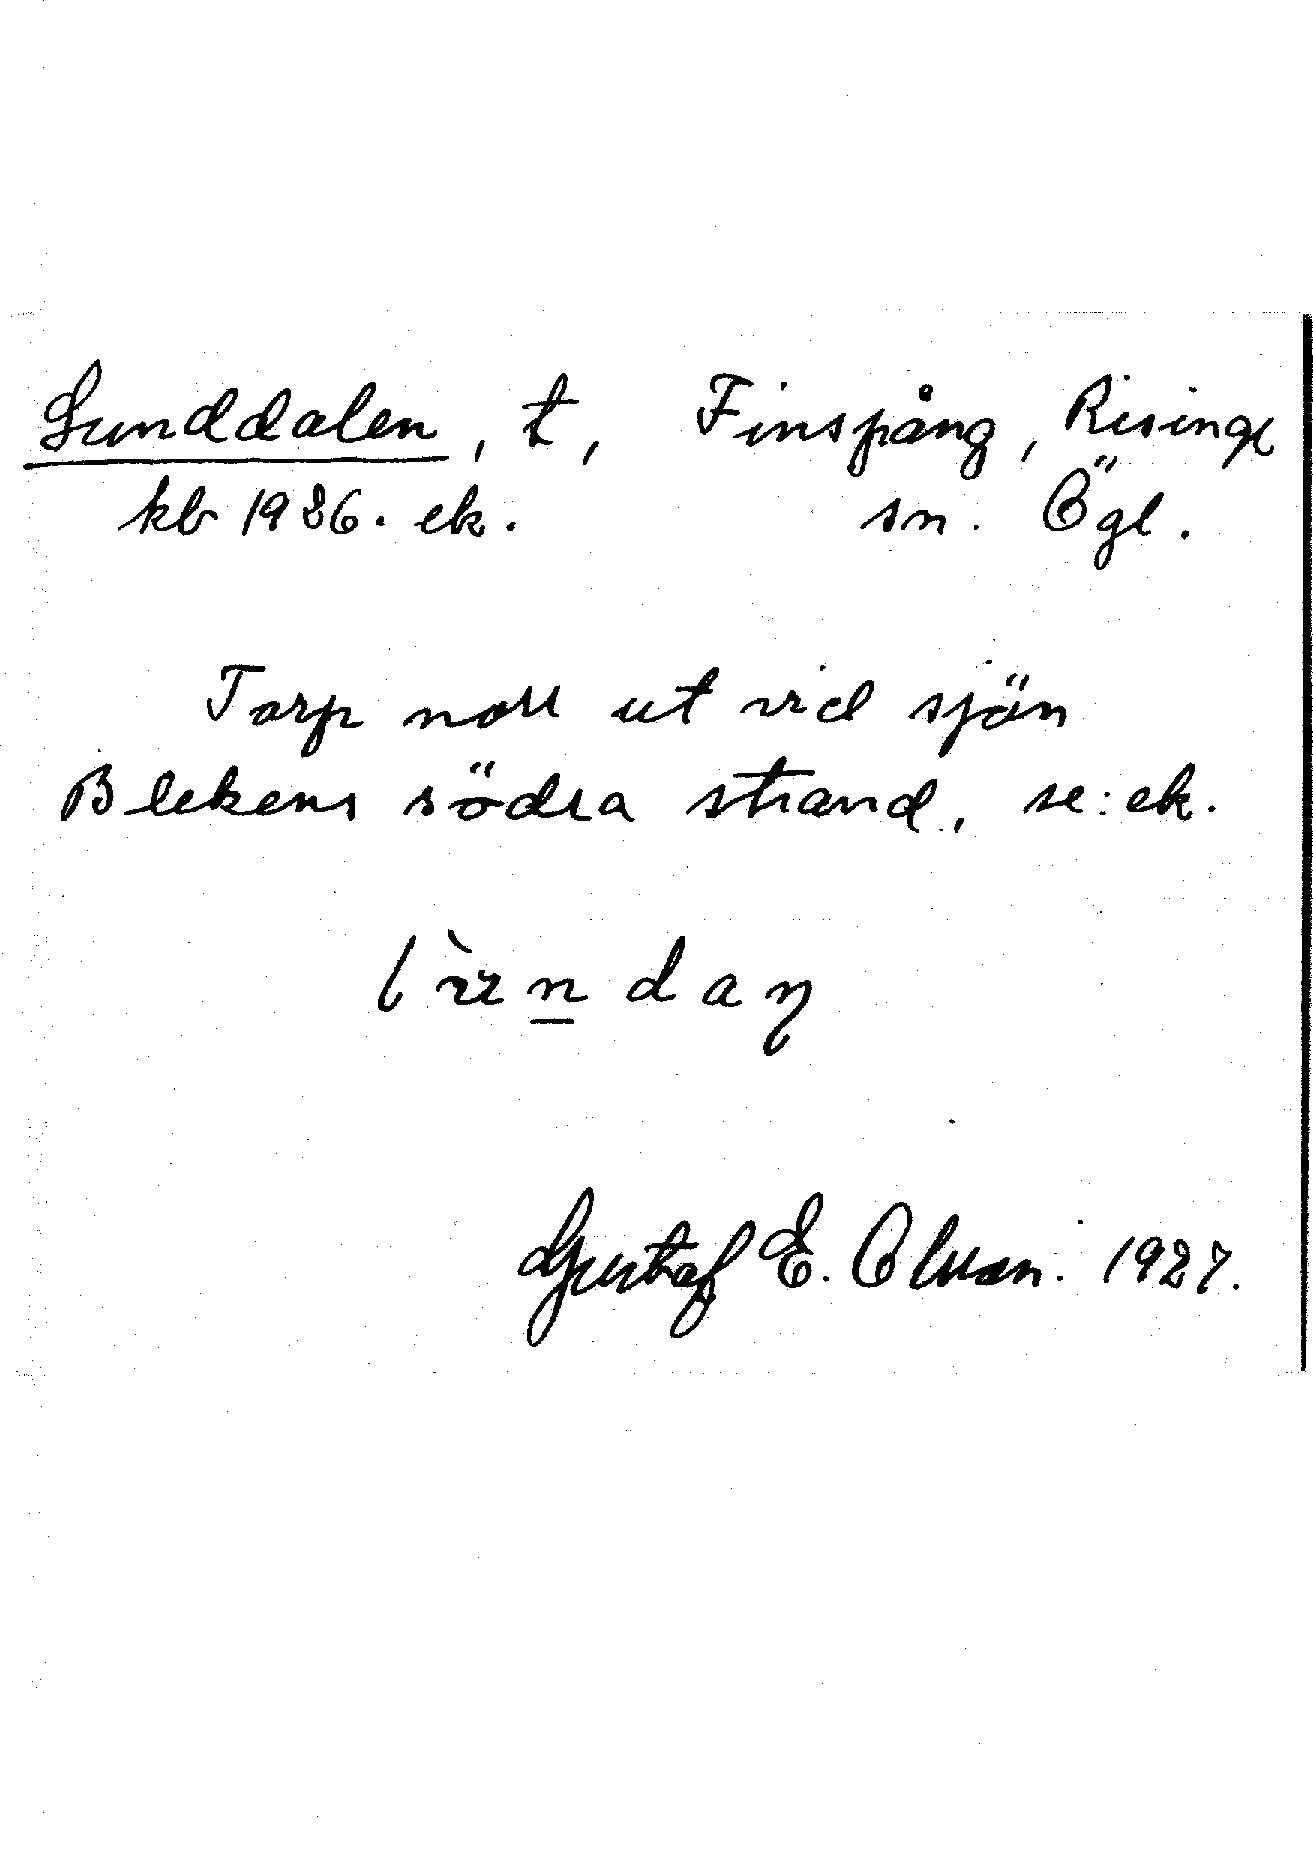 Lunddalen, t, Finspång, Risinge
kb 1926. ek. sn. Ögl.
Torp norr ut vid sjön
Blekens södra strand, se: ek.
Gustaf E. Olsson. 1927.